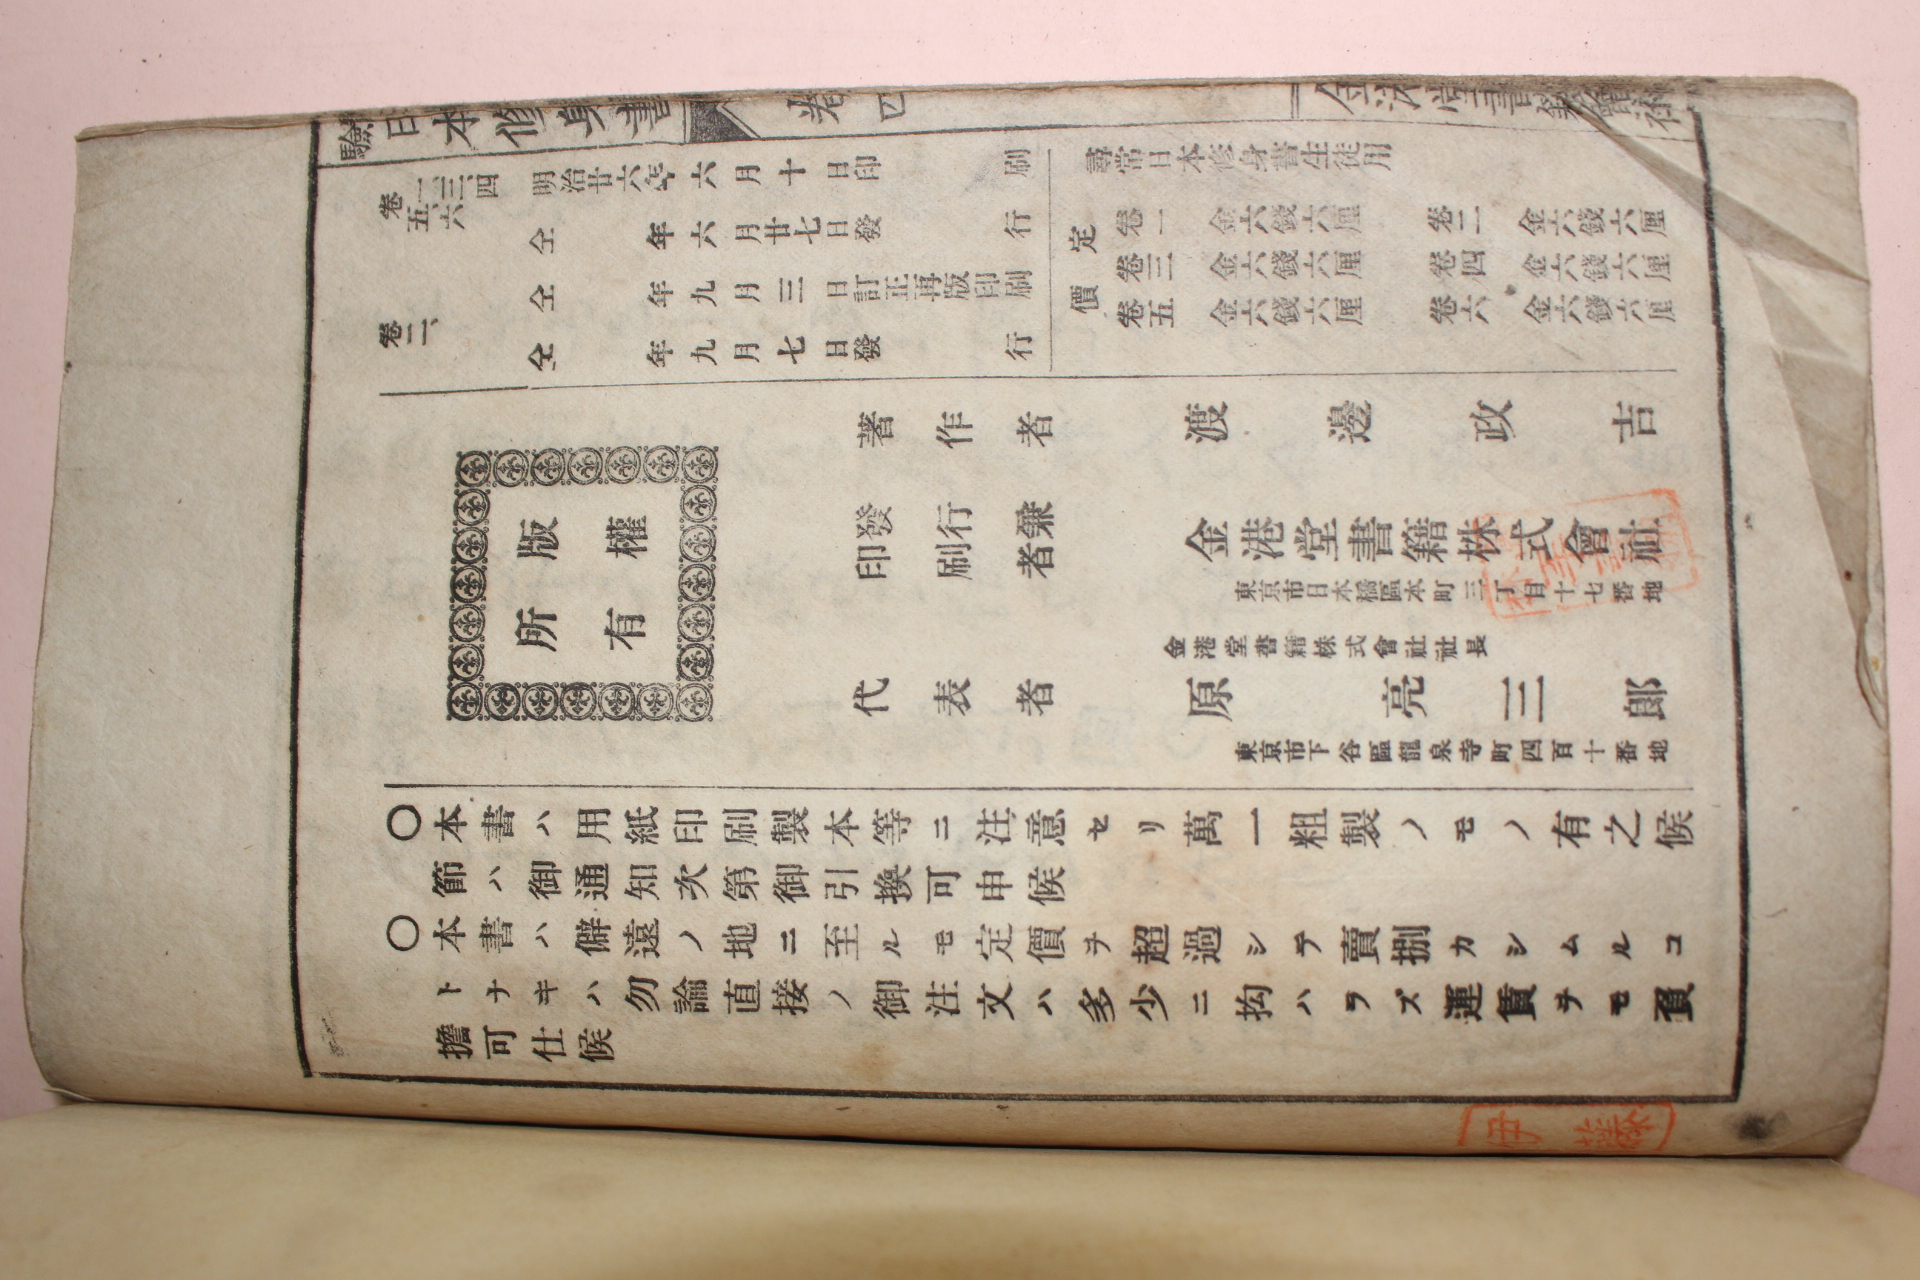 驗日本修身書 卷四
卷一、三、四
五、六
明治廿六年六月十日印刷
仝年六月廿七日發行
卷二、
仝年九月三日訂正再版印刷
仝年九月七日發行
尋常日本修身書生徒用
定價
卷一 金六錢六厘 卷二 金六錢六厘
卷三 金六錢六厘 卷四 金六錢六厘
卷五 金六錢六厘 卷六 金六錢六厘
版權
所有
著作者 渡邊政吉
發行兼
印刷者
金港堂書籍株式會社
東京市日本橋區本町三丁目十七番地
金港堂書籍株式會社社長
代表者 原亮三郎
東京市下谷區龍泉寺町四百十番地
〇本書ハ用紙印刷製本等ニ注意セリ萬一粗製ノモノ有之候
節ハ御通知次第御引換可申候
〇本書ハ僻遠ノ地ニ至ルモ定價ヲ超過シテ賣捌カシムルコ
トナキハ勿論直接ノ御注文ハ多少ニ拘ハラズ運賃ヲモ負
擔可仕候
伊藤